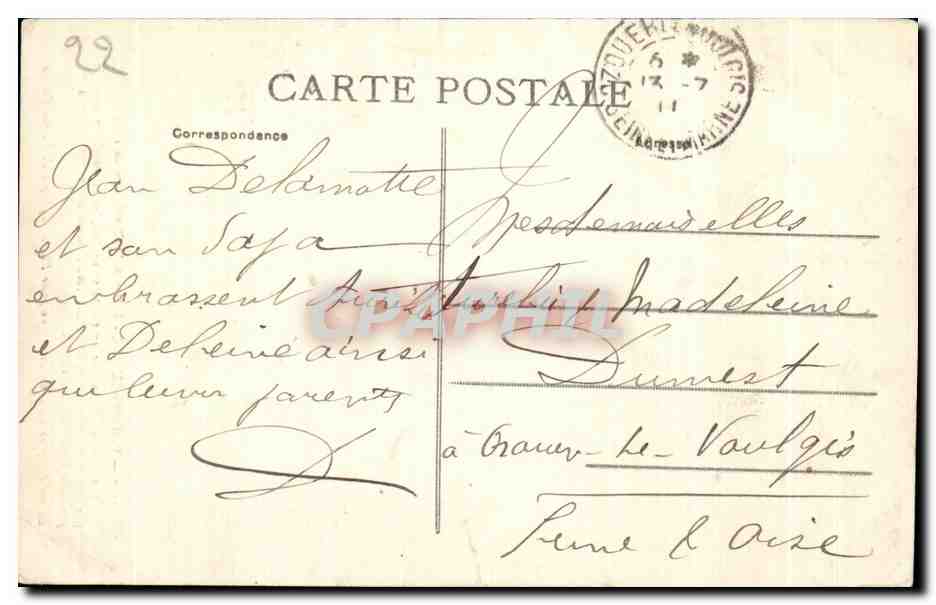 22
CARTE POSTALE
6 *
13 - 7
11
SEINE ET MARNE
Correspondance
Adresse
Jean Delamotte
et son Papa
embrassent
et Deleine ainsi
que leurs parents
D
Mesdemoiselles
Aurélie & Madeleine
Dumest
à Le Voulgis
Seine & Oise
CPAPHIL